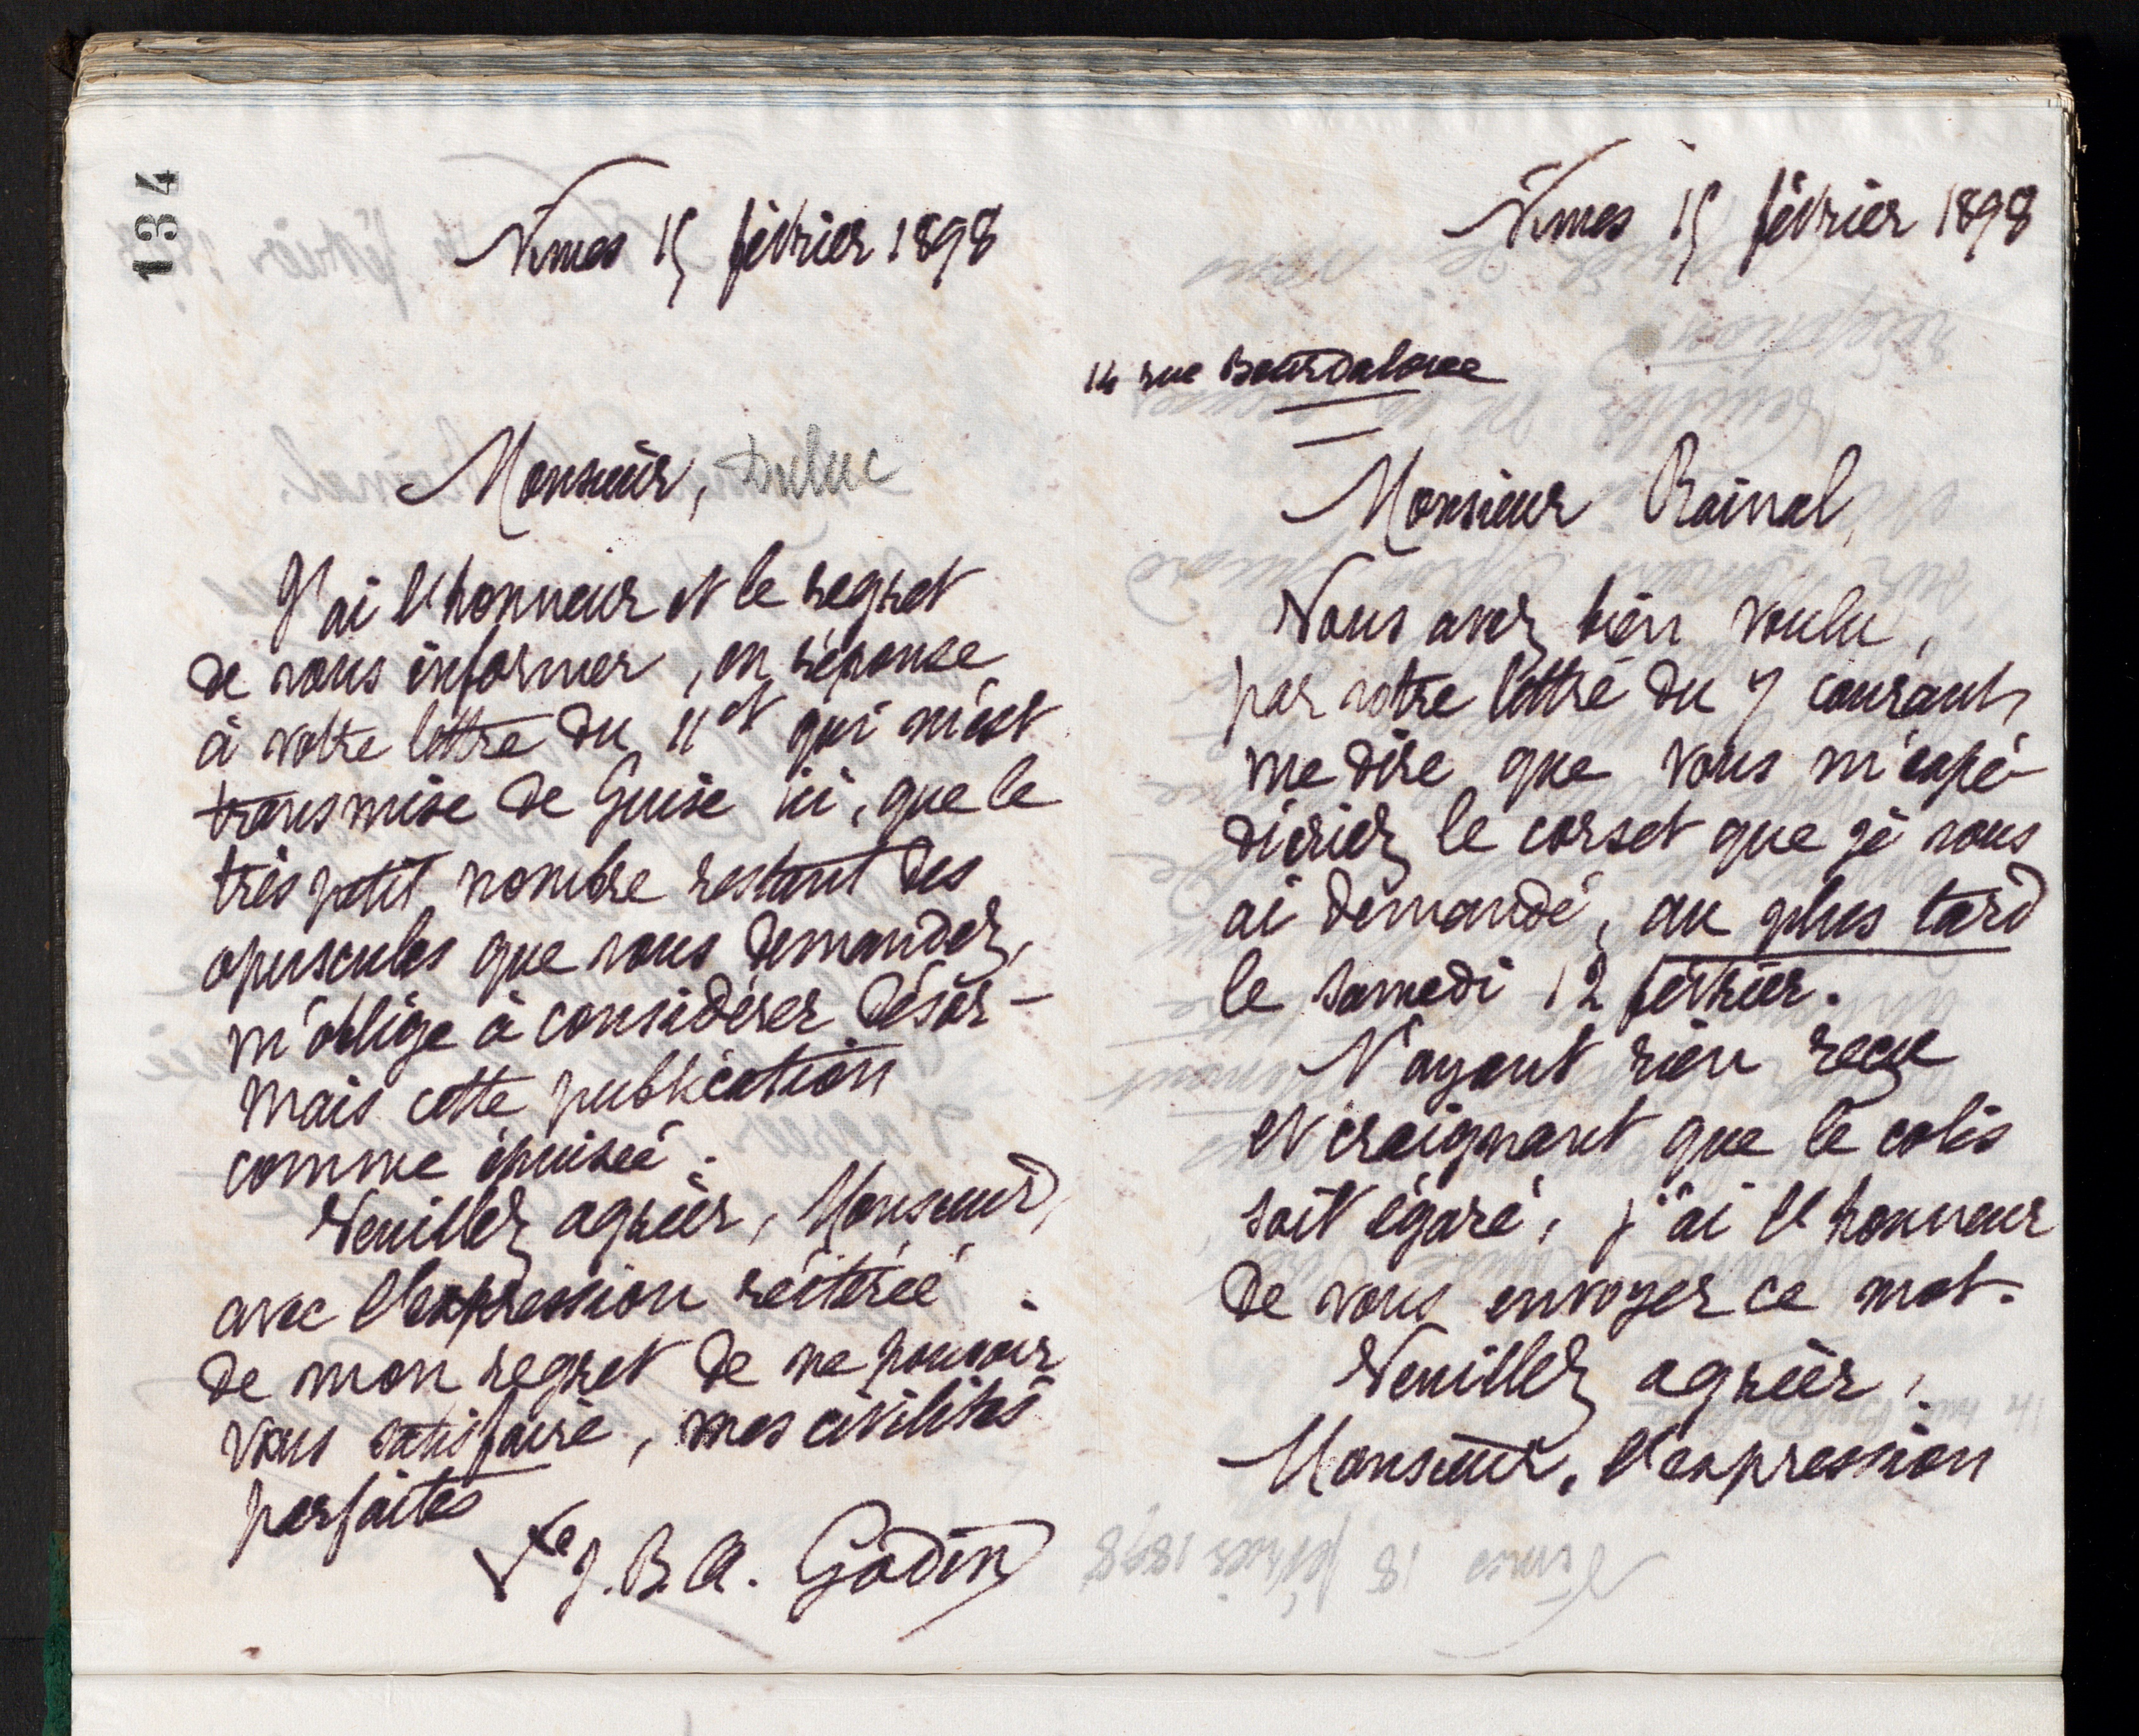 134
Nîmes 15 février 1898
Monsieur, Duluc
J'ai l'honneur et le regret
de vous informer, en réponse
à votre lettre du 11 et qui m'est
transmise de Guise ici, que le
très petit nombre restant des
opuscules que vous demandez,
m'oblige à considérer désor-
mais cette publication
comme épuisée.
Veuillez agréer, Monsieur,
avec l'expression réitérée
de mon regret de ne pouvoir
vous satisfaire, mes civilités
parfaites
Ve J. B. A. Godin
Nîmes 15 février 1898
14 rue Bourdaloue
Monsieur Rainal,
Vous avez bien voulu,
par votre lettre du 7 courant,
me dire que vous m'expé-
dieriez le corset que je vous
ai demandé, au plus tard
le samedi 12 février.
N'ayant rien reçu
et craignant que le colis
soit égaré, j'ai l'honneur
de vous envoyer ce mot.
Veuillez agréer,
Monsieur, l'expression